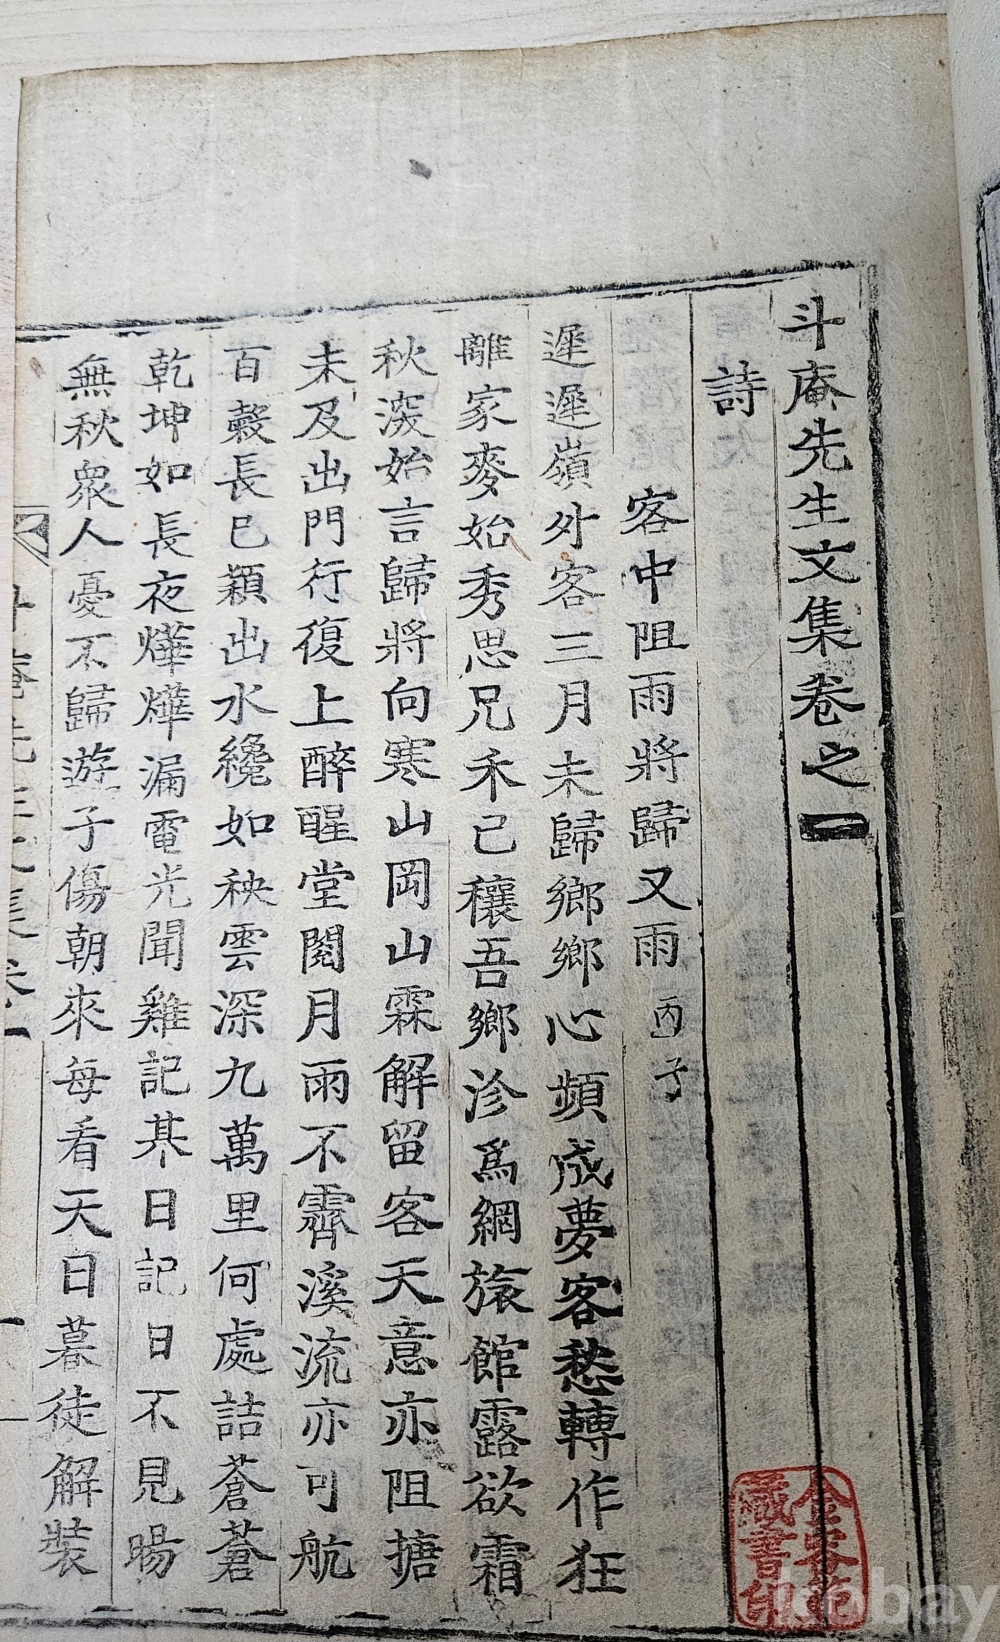 斗庵先生文集卷之一
詩
客中阻雨將歸又雨 丙子
遲遲嶺外客三月未歸鄉鄉心頻成夢客愁轉作狂
離家麥始秀思兄禾已穰吾鄉珍爲綱旅館露欲霜
秋深始言歸將向寒山岡山霖解留客天意亦阻搪
未及出門行復上醉醒堂閱月雨不霽溪流亦可航
百穀長已穎出水纔如秧雲深九萬里何處詰蒼蒼
乾坤如長夜燁燁漏電光聞雞記某日記日不見暘
無秋衆人憂不歸遊子傷朝來每看天日暮徒解裝
斗庵先生文集卷一
藏書印
kobay